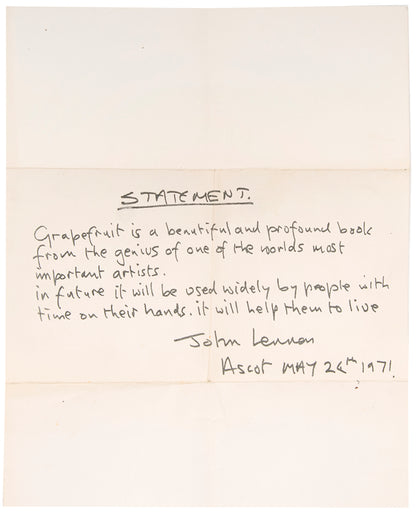 STATEMENT.
Grapefruit is a beautiful and profound book
from the genius of one of the worlds most
important artists.
in future it will be used widely by people with
time on their hands. it will help them to live
John Lennon
Ascot MAY 24th 1971.
?